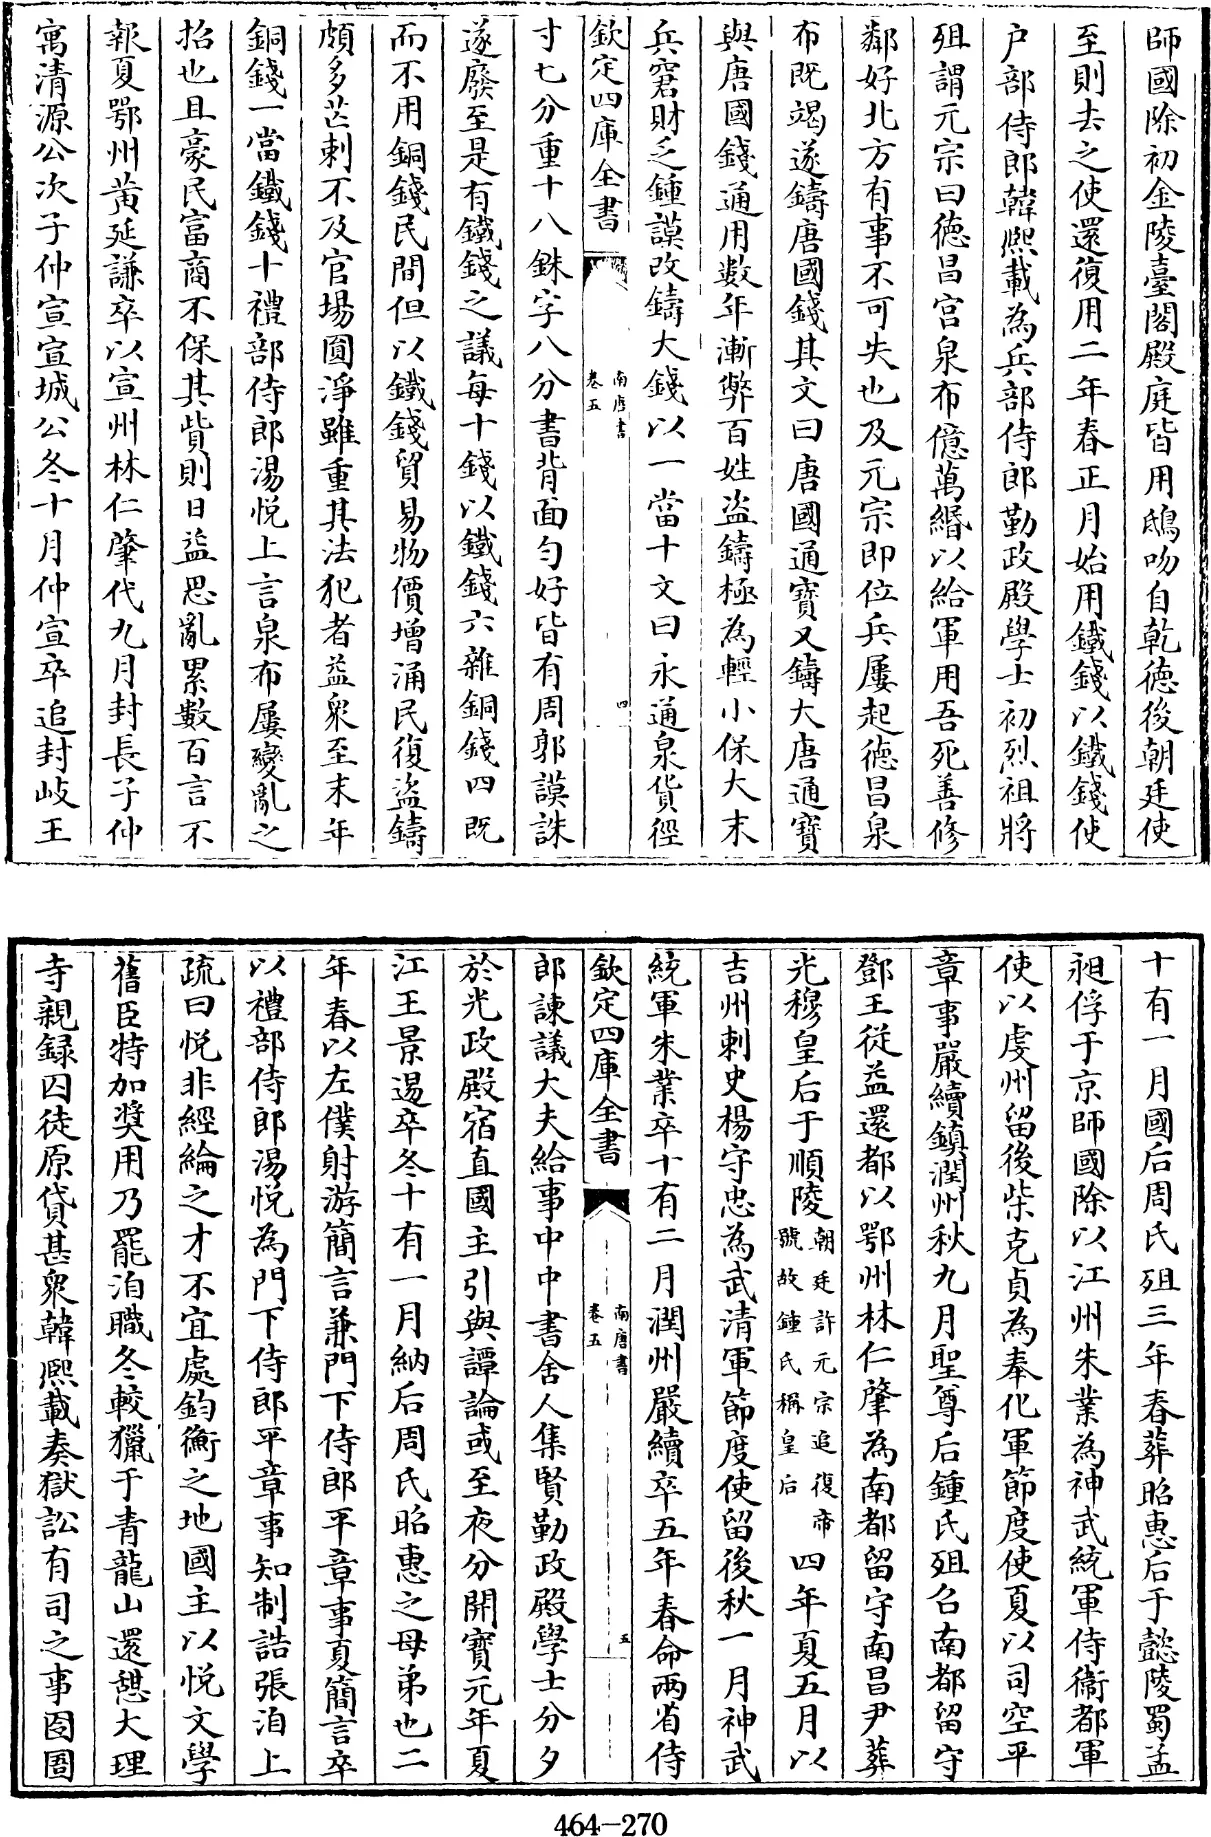 師國除初金陵臺閣殿庭皆用鴟吻自乾徳後朝廷使
至則去之使還復用二年春正月始用鐵錢以鐵錢使
户部侍郎韓熙載為兵部侍郎勤政殿學士初烈祖將
殂謂元宗曰徳昌宫泉布億萬緡以給軍用吾死善修
鄰好北方有事不可失也及元宗即位兵屢起徳昌泉
布既竭遂鑄唐國錢其文曰唐國通寶又鑄大唐通寶
與唐國錢通用數年漸弊百姓盗鑄極為輕小保大末
兵窘財乏鍾謨改鑄大錢以一當十文曰永通泉貨徑
欽定四庫全書
南唐書
卷五
四
寸七分重十八銖字八分書背面勻好皆有周郭謨誅
遂廢至是有鐵錢之議每十錢以鐵錢六雜銅錢四既
而不用銅錢民間但以鐵錢貿易物價增涌民復盗鑄
頗多芒刺不及官場圓淨雖重其法犯者益衆至末年
銅錢一當鐵錢十禮部侍郎湯悦上言泉布屢變亂之
招也且豪民富商不保其貲則日益思亂累數百言不
報夏鄂州黄延謙卒以宣州林仁肇代九月封長子仲
寓清源公次子仲宣宣城公冬十月仲宣卒追封岐王
十有一月國后周氏殂三年春葬昭惠后于懿陵蜀孟
昶俘于京師國除以江州朱業為神武統軍侍衞都軍
使以虔州留後柴克貞為奉化軍節度使夏以司空平
章事嚴續鎮潤州秋九月聖尊后鍾氏殂召南都留守
鄧王從益還都以鄂州林仁肇為南都留守南昌尹葬
光穆皇后于順陵朝廷許元宗追復帝號故鍾氏稱皇后四年夏五月以
吉州刺史楊守忠為武清軍節度使留後秋一月神武
統軍朱業卒十有二月潤州嚴續卒五年春命兩省侍
欽定四庫全書
南唐書
卷五
五
郎諫議大夫給事中中書舍人集賢勤政殿學士分夕
於光政殿宿直國主引與譚論或至夜分開寶元年夏
江王景逷卒冬十有一月納后周氏昭惠之母弟也二
年春以左僕射游簡言兼門下侍郎平章事夏簡言卒
以禮部侍郎湯悦為門下侍郎平章事知制誥張洎上
疏曰悦非經綸之才不宜處鈞衡之地國主以悦文學
舊臣特加奬用乃罷洎職冬較獵于青龍山還憩大理
寺親録囚徒原貸甚衆韓熙載奏獄訟有司之事囹圄
464-270